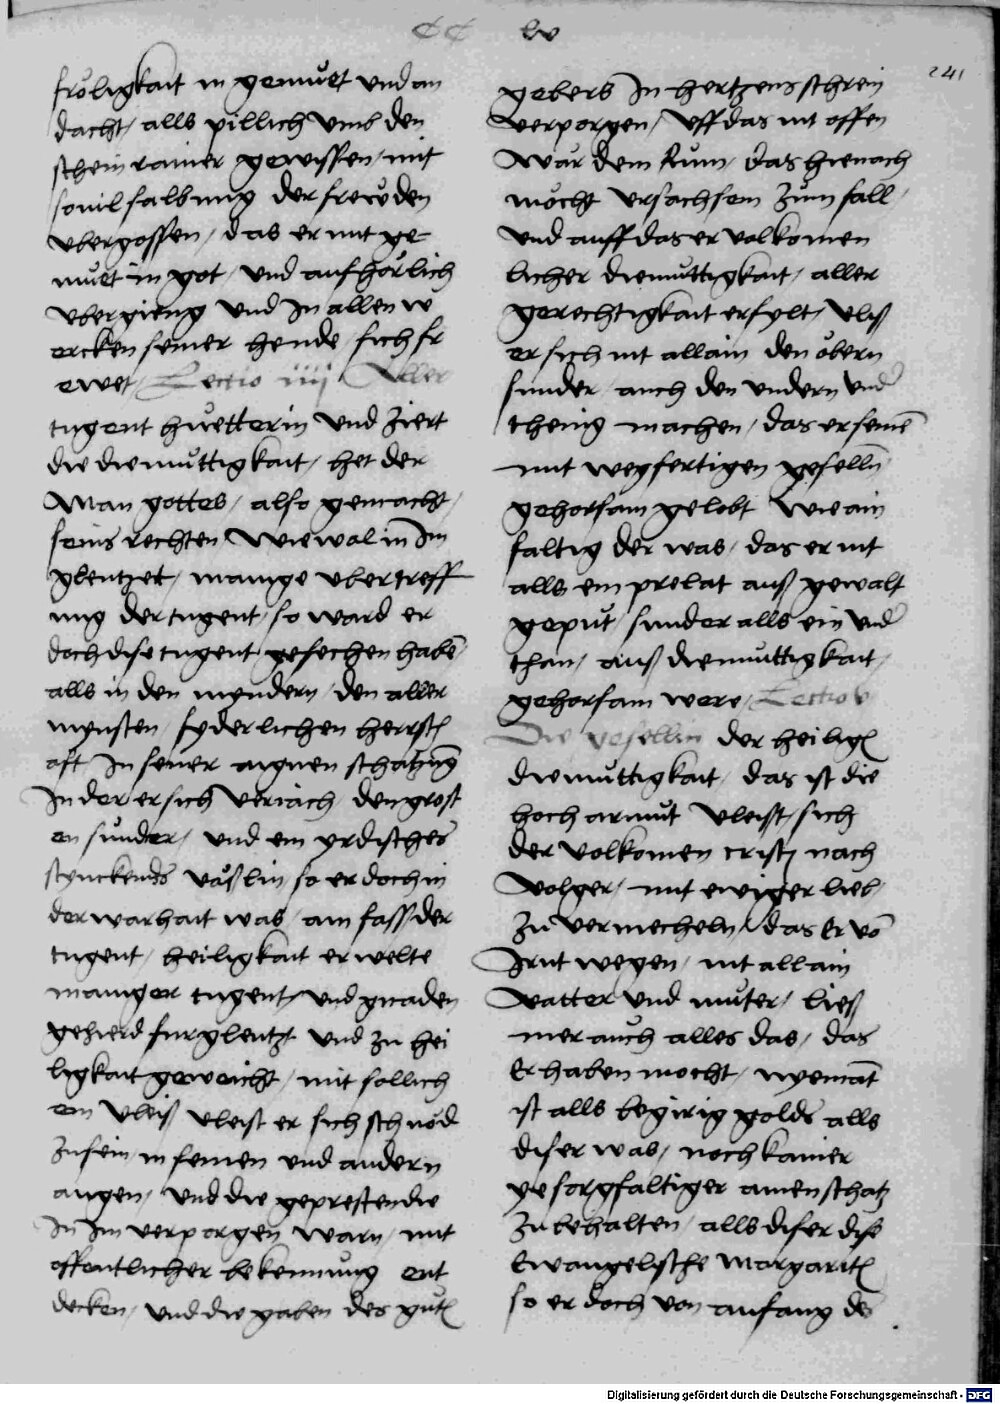 CC lv
241
frőligkait in gemuet und an
dacht, alls pillich umb den
schein rainer gewissen, mit
sovil salbung der frewden
ubergossen, das er mit ge
muet in got, und aufhörlich
ubergieng und In allen w
ercken seiner hende sich fr
ewet, Lectio iiij Aller
tugent huetterin und ziert
die diemuttigkait, het der
Man gottes, also gemacht,
seins rechten Wiewol in Im
glentzet, mainge ubertreff
ung der tugent, so ward er
doch dise tugent gesechen habē
alls in den myndern, den aller
mynsten, syderlichen herrst
oft, In seiner aignen schatzung
In der er sich veriach, den grost
en sunder, und ein yrdisches
stynckends väßlin, so er doch in
der warhait was, ain fass, der
tugent, heiligkait erwelte
mainger tugent, und gnaden
gezierd furglentzt und zu hei
ligkait geweicht, mit sollich
em vleiß vleist er sich schnöd
zusein, in seinen und andern
augen, und die gepresten die
In Im verporgen warn, mit
offentlicher bekennung ent
decken, und die gaben des gut
gebers In hertzens schrein
verporgen, Uff das nit offen
war dem Rum, das hienach
möcht ursachsein zum fall,
und auff das er volkomen
licher diemuttigkait, aller
gerechtigkait erfylt, vliß
er sich nit allain den öbern
sunder, auch den undern und
thenig machen, das er seinē
mit wegfertigen geselln
gehorsam gelobt Wie ain
faltig der was, das er nit
alls ein prelat auß gewalt
geput, sunder alls ein und
than, auß diemuttigkait,
gehorsam were, Lectio v
Die gesellin der heilig
diemuttigkait, das ist die
hoch armut vleist, sich
der volkomen cristz nach
volger, mit ewiger lieb,
zu vermecheln, das Er vō
Irnt wegen, nit allain
vatter und muter, ließ
mer auch alles das, das
Er haben mocht, nyemāt
ist alls begirig golds alls
diser was, noch kainer
ye sorgfaltiger ainen schatz
zu behalten, alls diser dise
Ewangelische Margarit
so er doch von anfang des
Digitalisierung gefördert durch die Deutsche Forschungsgemeinschaft - DFG